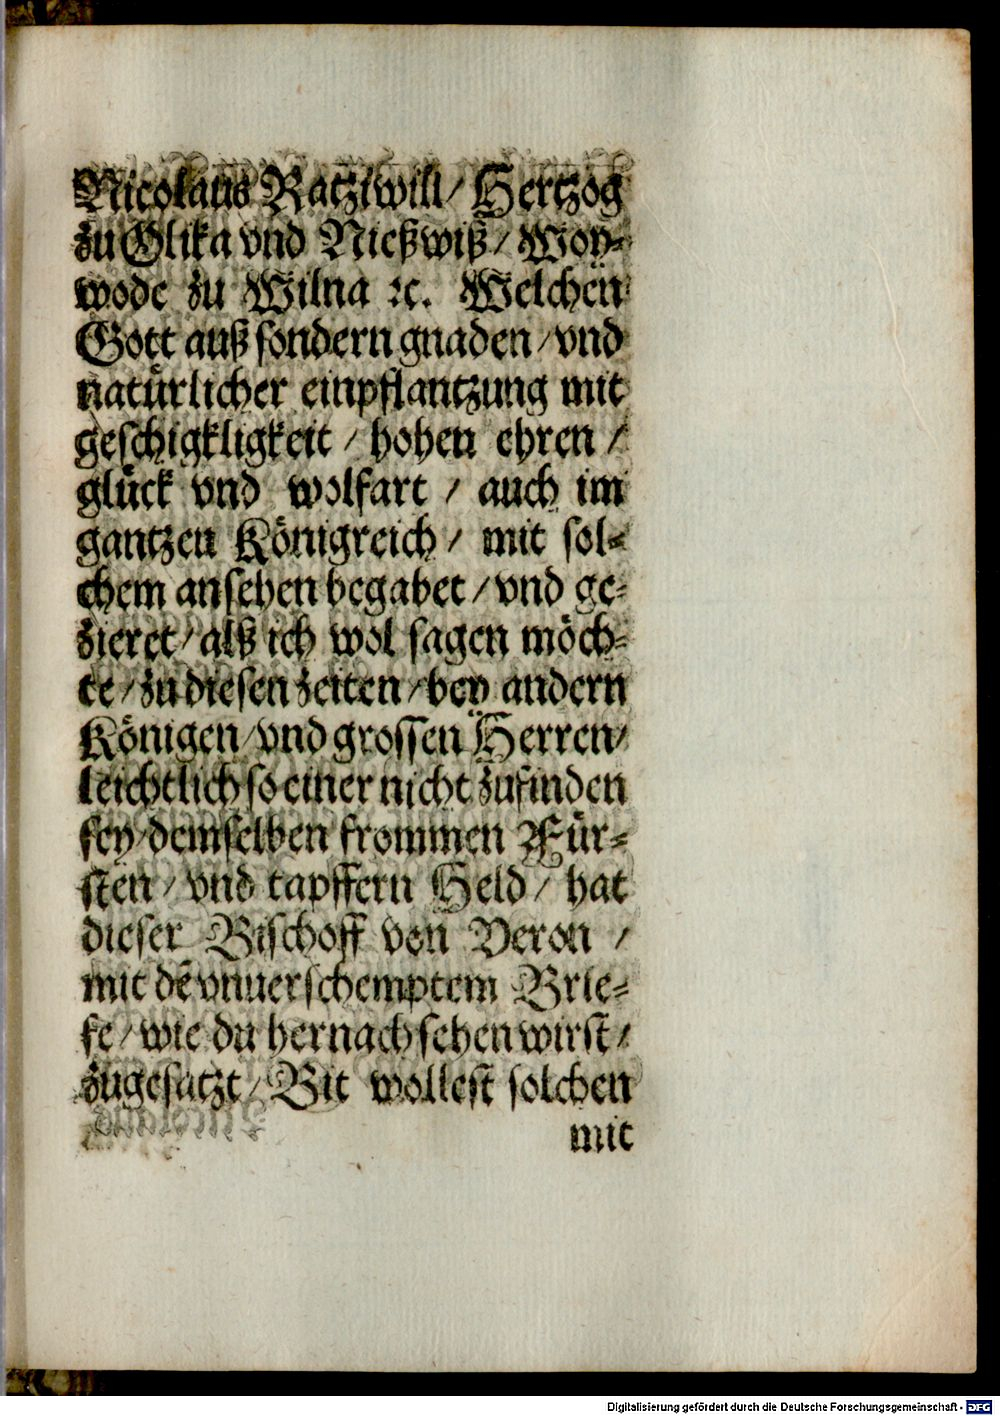 Nicolaus Ratziwill / Hertzog
zu Olika vnd Nießwiß / Woy⸗
wode zu Wilna ꝛc. Welchen
Gott auß sondern gnaden / vnd
natürlicher einpflantzung mit
geschigkligkeit / hohen ehren /
glück vnd wolfart / auch im
gantzen Königreich / mit sol⸗
chem ansehen begabet / vnd ge⸗
zieret / alß ich wol sagen möch⸗
te / zu diesen zeiten / bey andern
Königen / vnd grossen Herren /
leichtlich so einer nicht zufinden
sey / demselben frommen Für⸗
sten / vnd tapffern Held / hat
dieser Bischoff von Veron /
mit dē vnuerschemptem Brie⸗
fe / wie du hernach sehen wirst /
zugesatzt / Bit wollest solchen
mit
Digitalisierung gefördert durch die Deutsche Forschungsgemeinschaft - DFG